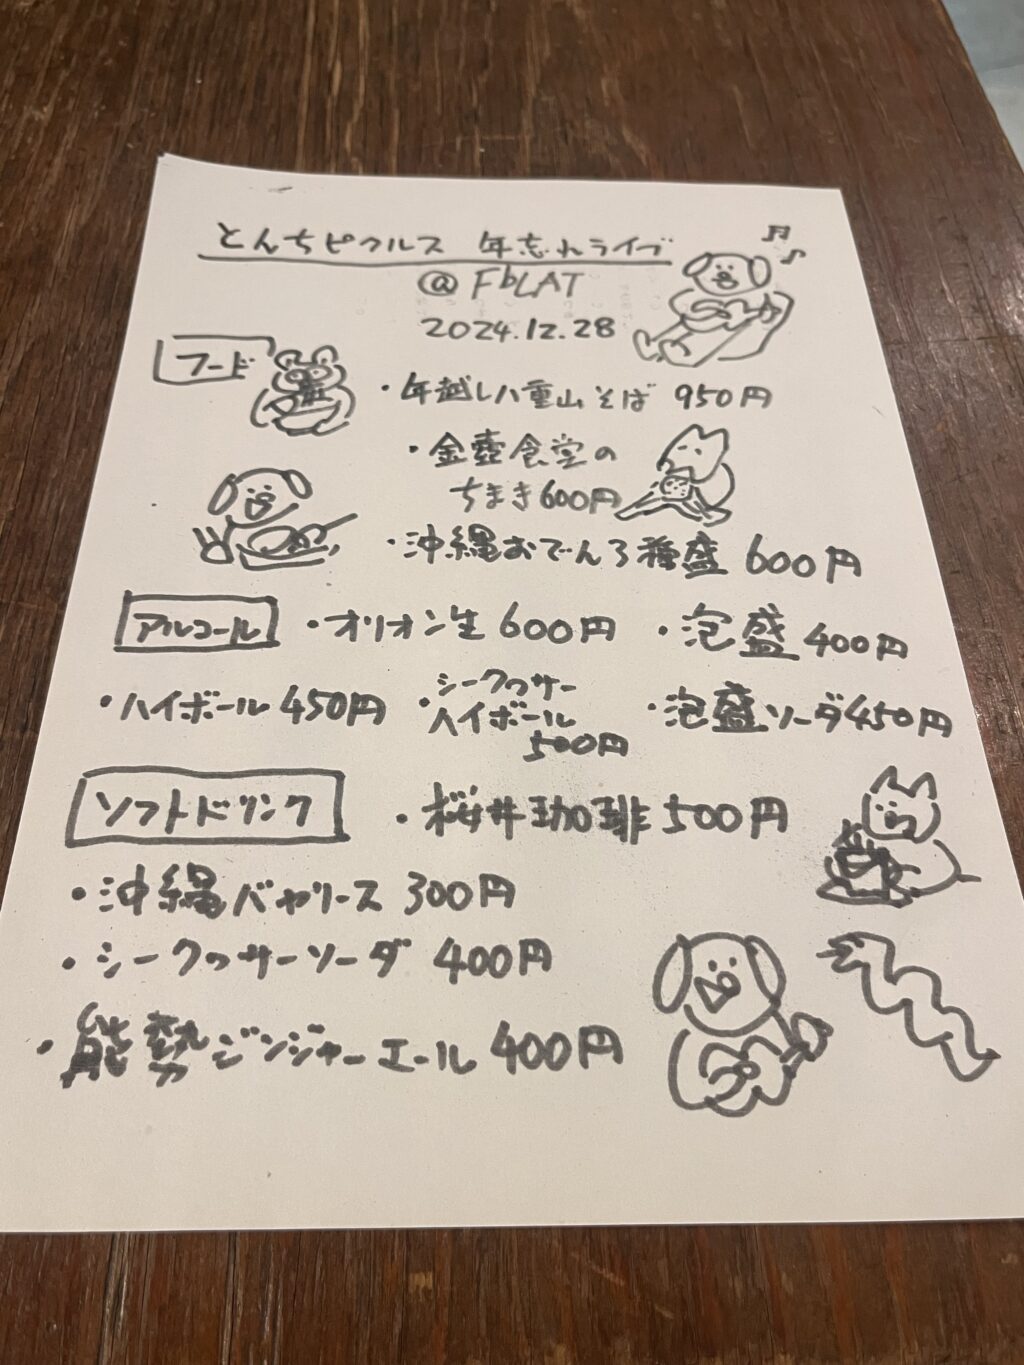 とんちピクルス 年忘れライブ
@FbLAT
2024.12.28
フード
・年越し八重山そば 950円
・金壺食堂の
ちまき600円
・沖縄おでん3種盛 600円
アルコール
・オリオン生 600円
・泡盛 400円
・ハイボール 450円
・シークヮサー
ハイボール
500円
・泡盛ソーダ450円
ソフトドリンク
・桜井珈琲 500円
・沖縄バヤリース 300円
・シークヮサーソーダ 400円
・能勢ジンジャーエール 400円